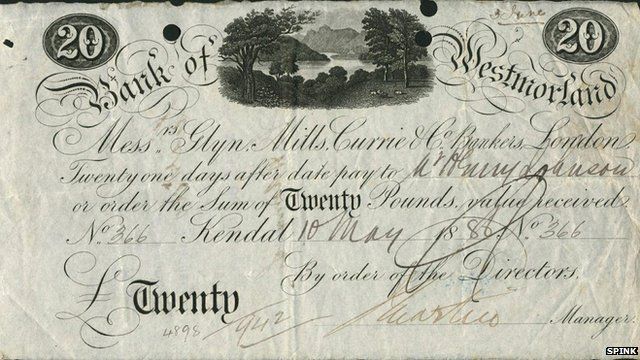 20
20
3 June
Bank of Westmorland
Messrs. Glyn, Mills, Currie & Co. Bankers, London
Twenty one days after date pay to Mr Henry Johnson
or order the Sum of Twenty Pounds, value received
No. 366 Kendal 10 May 1888 No. 366
By order of the Directors,
£ Twenty
4898 942
Manager.
SPINK